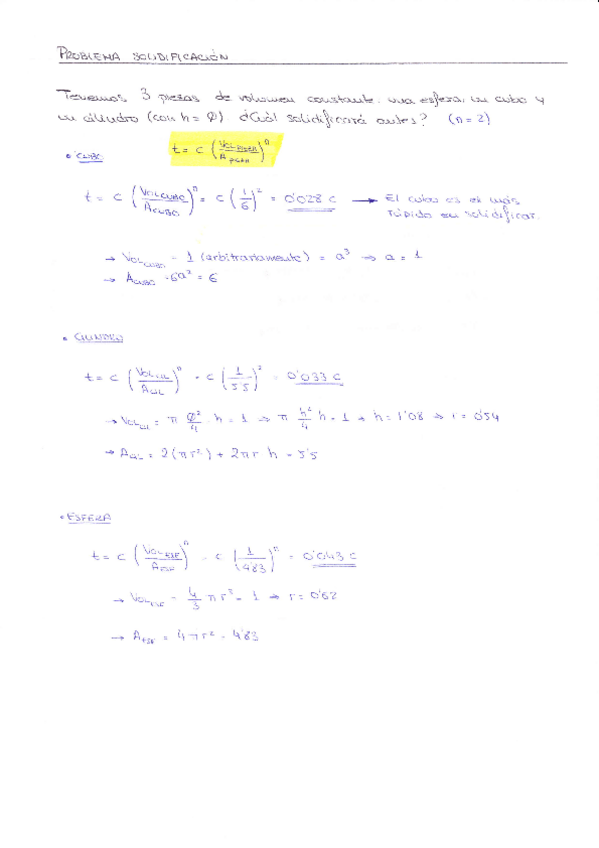 PROBLEMA SOLIDIFICACIÓN
Tenemos 3 piezas de volumen constante: una esfera, un cubo y
un cilindro (con h = Ø). ¿Cuál solidificará antes? (n = 2)
• CUBO
t = C (VOL PIEZA / A PIEZA)^n
t = C (VOL CUBO / A CUBO)^n = C (1/6)^2 = 0'028 C → El cubo es el más
rápido en solidificar.
→ VOL CUBO = 1 (arbitrariamente) = a³ ⇒ a = 1
→ A CUBO = 6a² = 6
• CILINDRO
t = C (VOL CIL / A CIL)^n = C (1/5'5)^2 = 0'033 C
→ VOL CIL = π Ø²/4 · h = 1 ⇒ π h²/4 h = 1 → h = 1'08 ⇒ r = 0'54
→ A CIL = 2(πr²) + 2πr h = 5'5
• ESFERA
t = C (VOL ESF / A ESF)^n = C (1/4'83)^n = 0'043 C
→ VOL ESF = 4/3 π r³ = 1 ⇒ r = 0'62
→ A ESF = 4πr² = 4'83